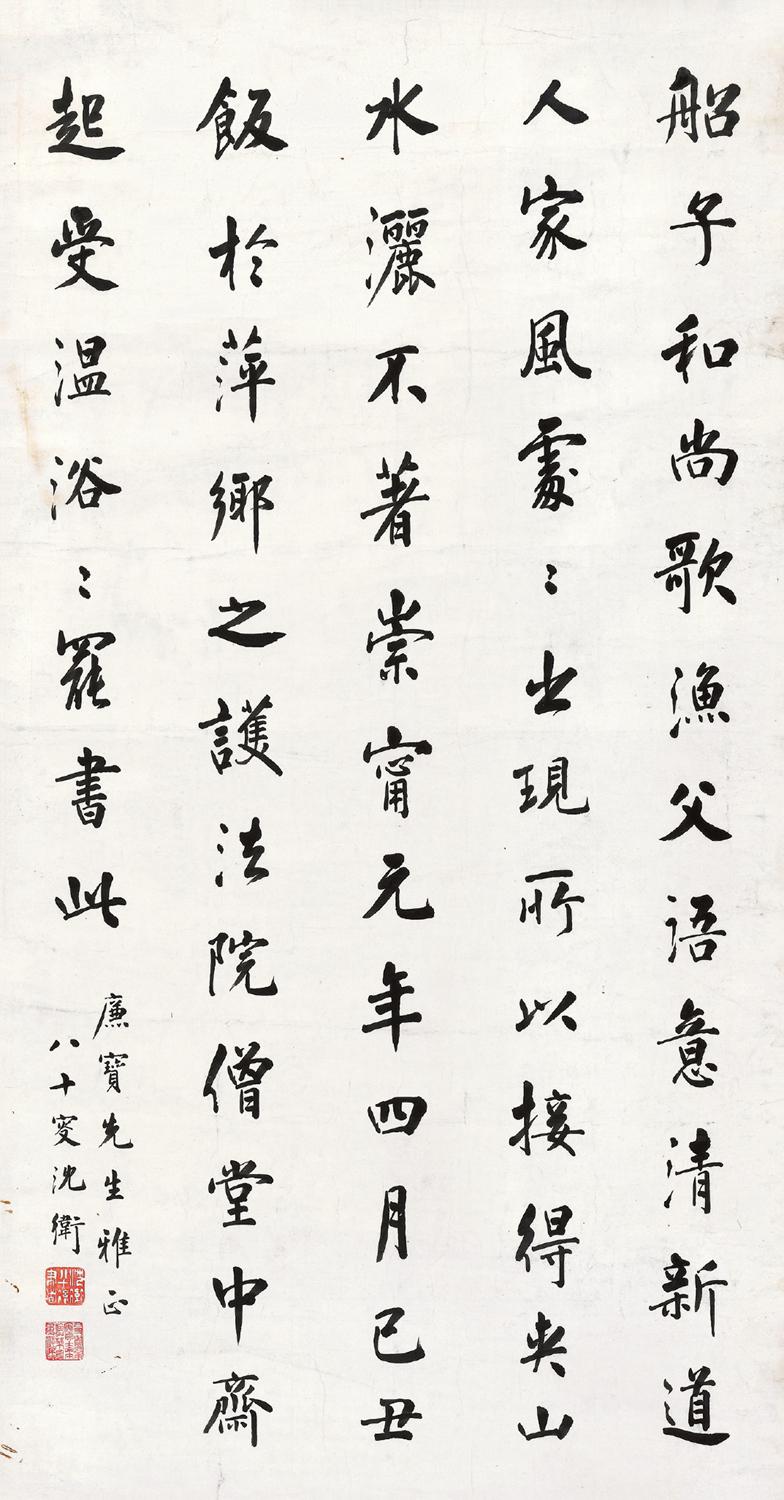 船子和尚歌漁父語意清新道
人家風處〻出現所以接得夾山
水灑不著崇甯元年四月己丑
飯於萍鄉之護法院僧堂中齋
起受温浴〻罷書此
廉寶先生雅正
八十叟沈衛